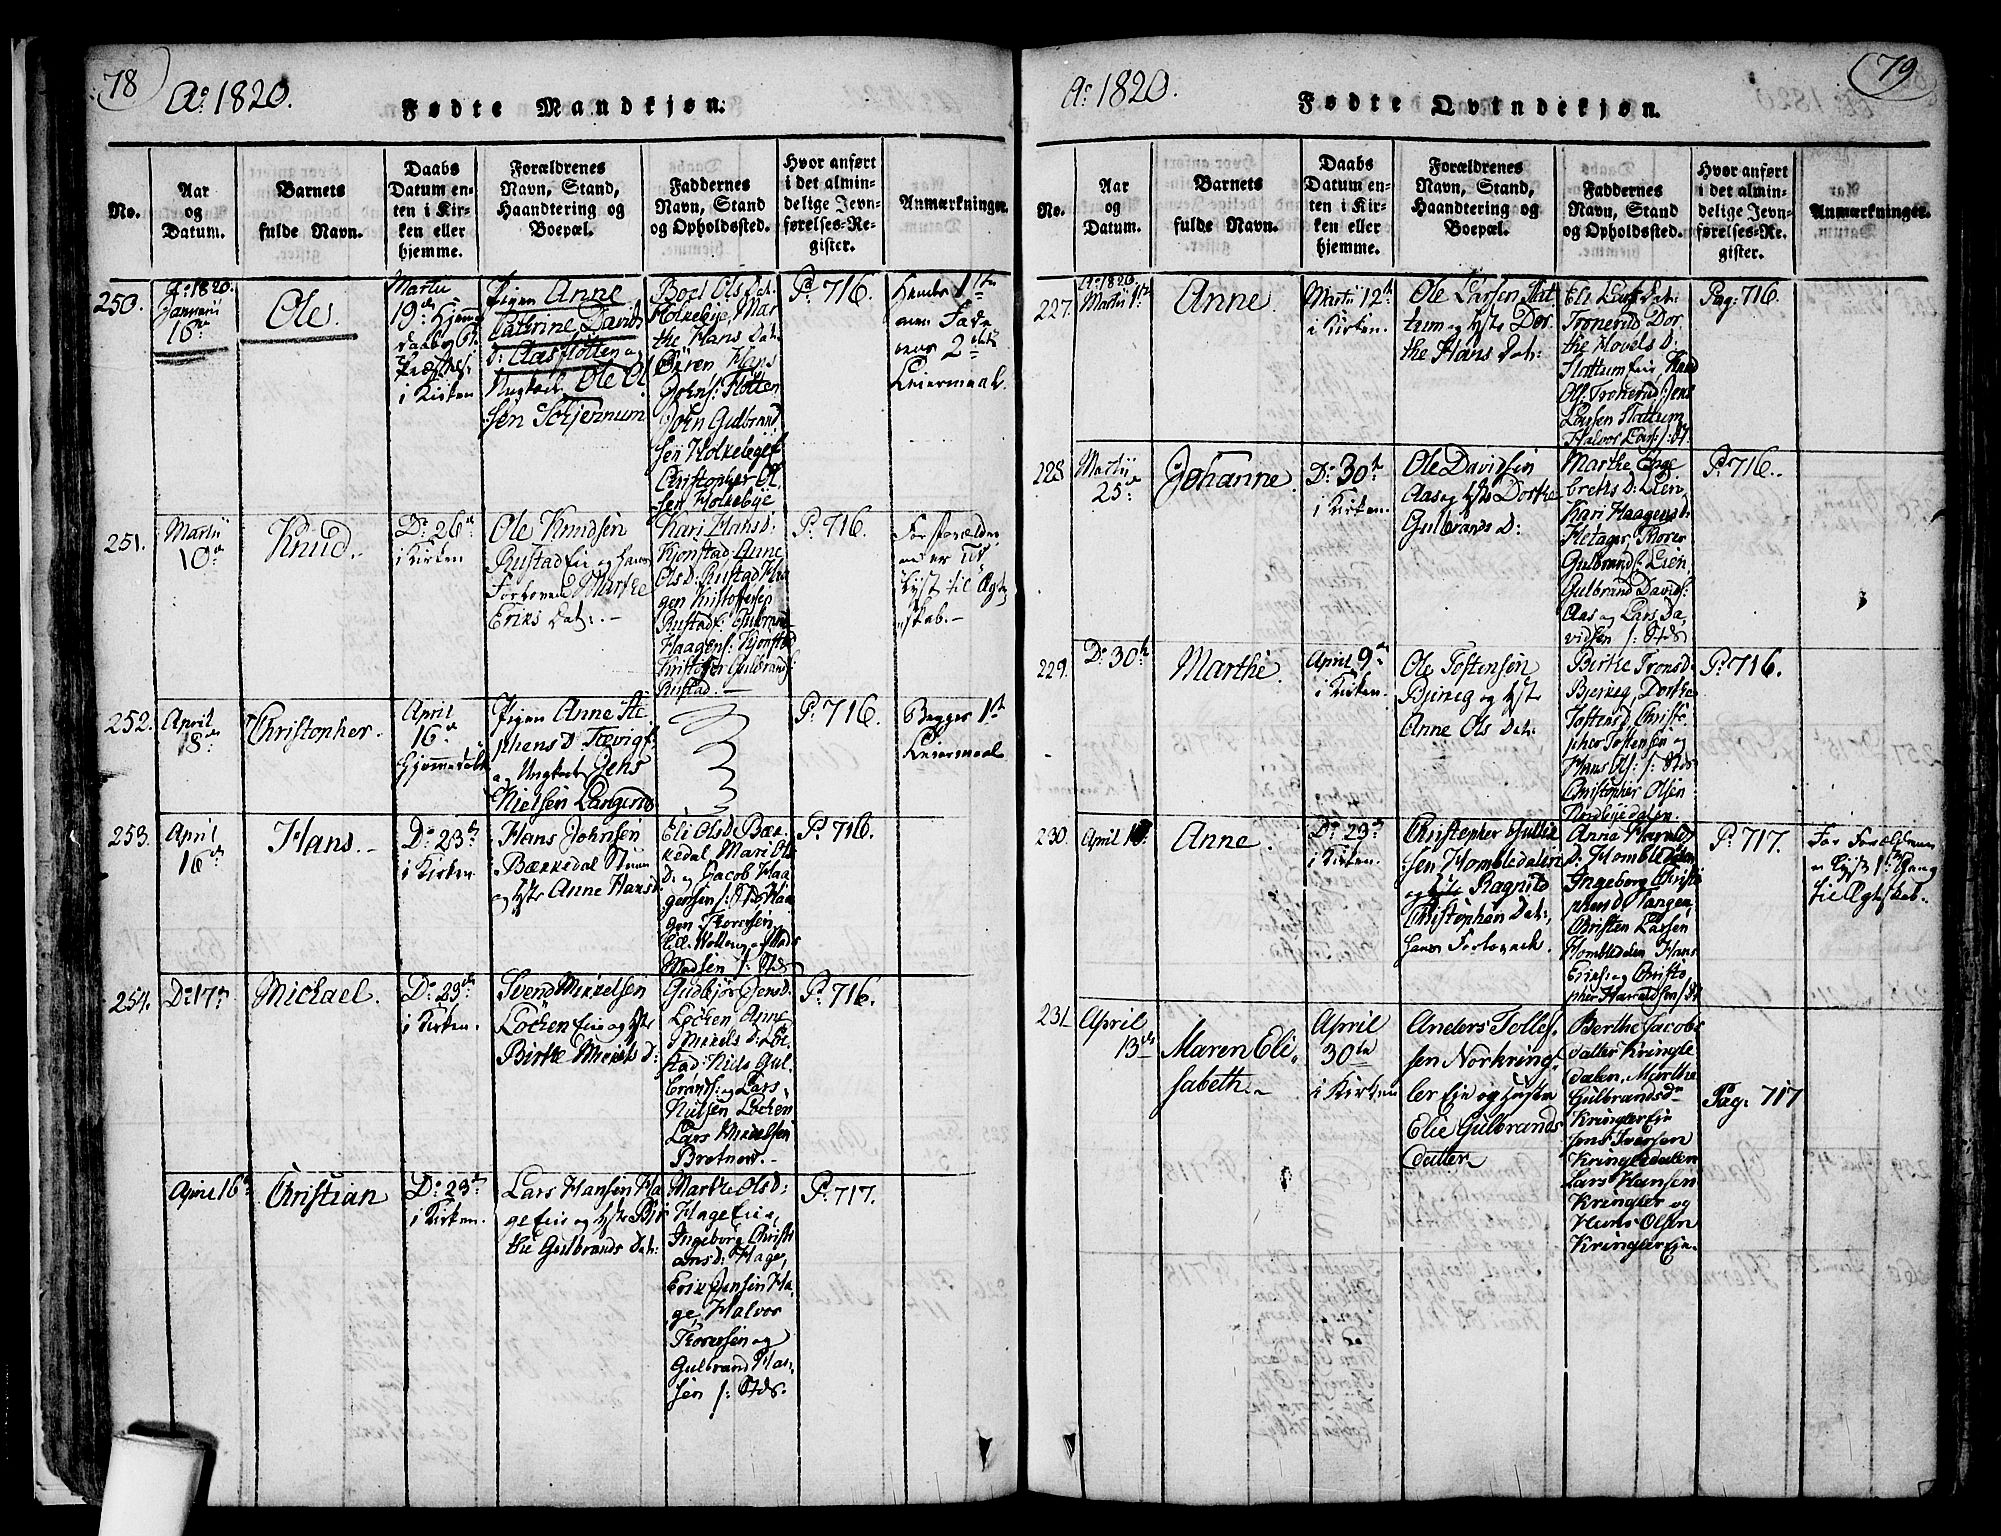 78
Ao 1820.
Fødte Mandkjøn.
No.
Aar
og
Datum.
Barnets
fulde Navn.
Daabs
Datum en-
ten i Kir-
ken eller
hjemme.
Forældrenes
Navn, Stand,
Haandtering og
Boepæl.
Faddernes
Navn, Stand
og Opholdssted.
Hvor anført
i det almin-
delige Jevn-
førelses-Re-
gister.
Anmærkninger.
250.
Ao 1820.
Januarii
16de
Ole.
Martii
19de Hjemme
i Kirken
Pigen Anne
Cathrine Davids
D: Aasflotten og
Ungkarl Ole Ol
sen Schjernum
Boel Ols Dat:
Holkebye, Mar
the Hans Dat:
Hans
Johns: Flotten
John Gulbrand
sen
Christopher Ol
sen Holkebye
Pa 716.
Hendes 1ste
men Fade
rens 2det
Leiermaal.
251.
Martii
10de
Knud.
Do 26de
i Kirken
Ole Knudsen
Rustad Eie og hans
Forlovede Marthe
Eriks Dat:. -
Kari Hans D:
Kjonstad Anne
Ols D: Rustad Haa
gen Kristofersen
Rustad: Gulbrand
Haagens: Kjonstad
Kristoffer Gulbrands:
Rustad. -
Pa 716.
For Forældre
ne er
lyst til Ægte
skab. -
252.
April
18de
Christopher.
April
16de
Hjemmedøbt
Pigen Anne Ste
phens D
og Ungkarl Jens
Nielsen
Pa 716.
Begges 1ste
Leiermaal
253.
April
16de
Hans. -
Do 23de
i Kirken.
Hans Johnsen
Bækkedal
og Hst: Anne Hans D:
Eli Ols D Bæk
kedal Mari Ols
D: og Jacob Haa
gensen /: Stds Haa
gen Thoresen
og Mads
Madsen /: Stds
Pa 716.
254.
Do 17de
Michael.
Do 23de
i Kirken.
Svend Mikkelsen
Løcken Eie og Hst:
Birthe Mikkels D:
Gudbjør Jens D:
Løcken Anne
Mikkels D: Løk
stad: Niels Gul
brands: og Lars
Nilsen Løcken
Lars Mikkelsen
Pa 716.
April 16de
Christian
Do 23de
i Kirken.
Lars Hansen Ha
ge Eie og Hst: Bir
the Gulbrands Dat:
Marthe Ols D:
Hage Eie,
Ingeborg Christi
ans D: Hage,
Erik Jensen Ha
ge, Halvor
Thoresen og
Gulbrand Han
sen /: Stds.
Pa 717.
79
Ao 1820.
Fødte Qvindekjøn.
No.
Aar
og
Datum.
Barnets
fulde Navn.
Daabs
Datum en-
ten i Kir-
ken eller
hjemme.
Forældrenes
Navn, Stand,
Haandtering og
Boepæl.
Faddernes
Navn, Stand
og Opholdssted.
Hvor anført
i det almin-
delige Jevn-
førelses-Re-
gister.
Anmærkninger.
227.
Ao 1820.
Martii 1ste
Anne.
Martii 12te
i Kirken.
Ole Larsen Flat
tum og Hst: Dor
the Hans Dat:
Eli Lars Dat:
Tronerud Dor
the Hovels D:
Flattum Eie, Knud
Ols: Tronerud: Jens
Larsen Flattum
Halvor Lars: /: St.
Pag: 716.
228
Martii
25de
Johanne.
Do 30te
i Kirken.
Ole Davidsen
Aas og Hst: Dorthe
Gulbrands D:
Marthe Enge
brets D: Lien,
Kari Haagens D:
Gulbrands: Lien
Gulbrand Davids:
Aas og Lars Da
vidsen /: Stds
Pa 716.
229.
Do 30te
Marthe.
April 9de
i Kirken.
Ole Tostensen
Bjineg og Hst:
Anne Ols Dat:
Birthe Trons D:
Bjineg, Dorthe
Tostens D Christo
pher Tostensen og
Hans Ols: /: Stds
Christopher Olsen
Nordbyedalen.
Pa 716.
230.
April
Anne.
Do 23de
i Kirken.
Christopher Gullic
sen Hombledalen
og Ragnild
Christophers Dat:
hans Forlovede.
Anne Harald
D: Hombledalen,
Ingeborg Christo
phers D Tangen,
Christen Larsen
Hombledalen Hans
Eriks: og Christo
pher Haraldsen /: St
Pa 717.
For Forældrene
er lyst 1ste Gang
til Ægteskab.
231
April
13de
Maren Eli-
sabeth. -
April
30te
i Kirken
Anders Tollef
sen Norkring
ler Eie og Hustru
Elie Gulbrands
datter
Berthe Jacobs
datter Kringle
dalen, Marthe
Gulbrandsd
Kringler Eie
Jens Iversen
Kringledalen
Lars Hansen
Kringler og
Hans Olsen
Kringler Eie.
Pag: 717